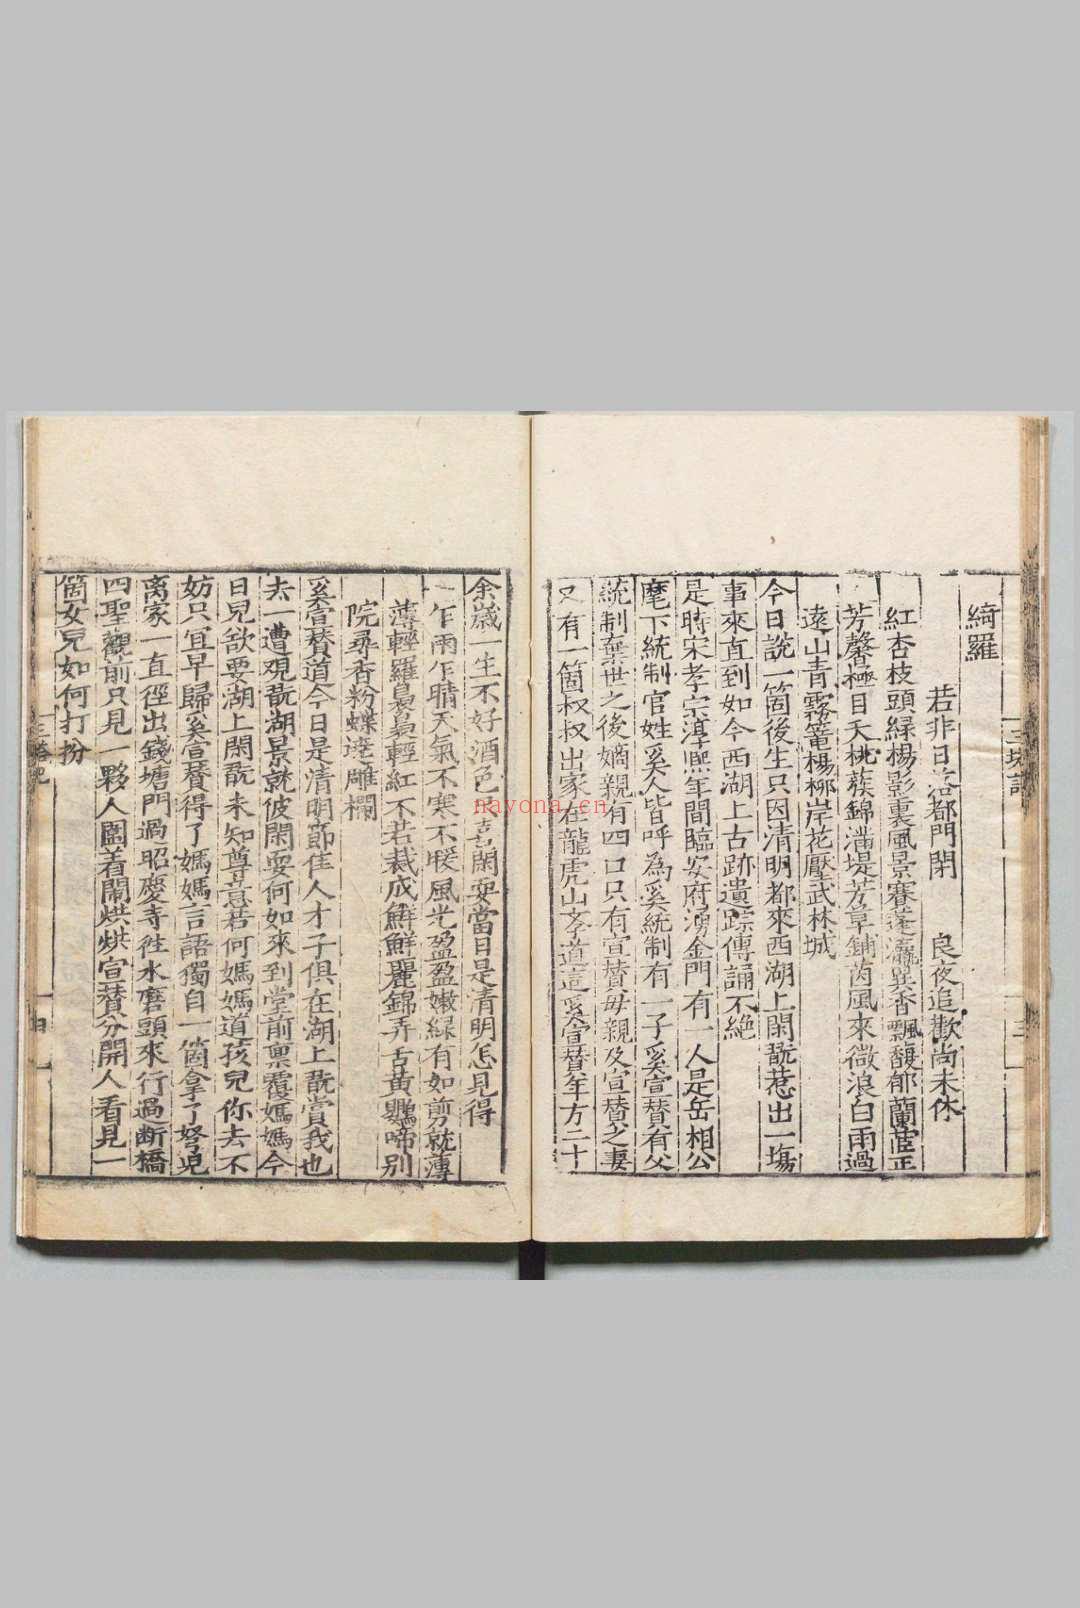 綺羅
若非日落都門閉　良夜追歡尚未休
紅杏枝頭緑楊影裏風景賽蓬瀛異香飄馥郁蘭茝正
芳馨極目夭桃蔟錦滿堤芳草鋪茵風來微浪白雨過
遠山青霧篭楊柳岸花壓武林城
今日説一箇後生只因清明都來西湖上閑翫惹出一塲
事來直到如今西湖上古跡遺踪傳誦不絶
是時宋孝宗淳熙年間臨安府湧金門有一人是岳相公
麾下統制官姓奚人皆呼為奚統制有一子奚宣賛有父
統制棄世之後嫡親有四口只有宣賛母親及宣賛之妻
又有一箇叔叔出家在龍虎山孝道這奚宣賛年方二十
余歲一生不好酒色喜閑耍當日是清明怎見得
乍雨乍晴天氣不寒不暖風光盈盈嫩緑有如剪就薄
薄輕羅裊裊輕紅不若裁成鮮鮮麗錦弄舌黄鸝啼别
院尋香粉蝶遶雕欄
奚宣賛道今日是清明節佳人才子俱在湖上翫賞我也
去一遭观翫湖景就彼閑耍何如來到堂前禀覆媽媽今
日兒欲要湖上閑翫未知尊意若何媽媽道孩兒你去不
妨只宜早歸奚宣賛得了媽媽言語獨自一箇拿了弩兒
离家一直徑出錢塘門過昭慶寺徃水磨頭來行過断橋
四聖觀前只見一夥人圍着閙烘烘宣賛分開人看見一
箇女兒如何打扮
三塔記
nayona.cn